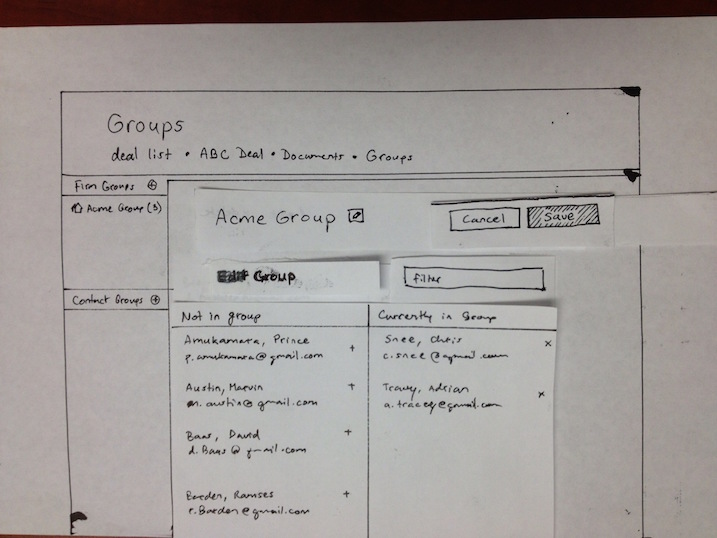 Groups
deal list • ABC Deal • Documents • Groups
Firm Groups +
Acme Group (3)
Acme Group
Cancel
Save
Edit Group
filter
Contact Groups +
Not in group
Currently in Group
Amukamara, Prince +
p.amukamara@gmail.com
Snee, Chris x
c.snee@gmail.com
Austin, Marvin +
m.austin@gmail.com
Adrian x
Baas, David +
d.Baas@gmail.com
Barden, Ramses +
r.Barden@gmail.com